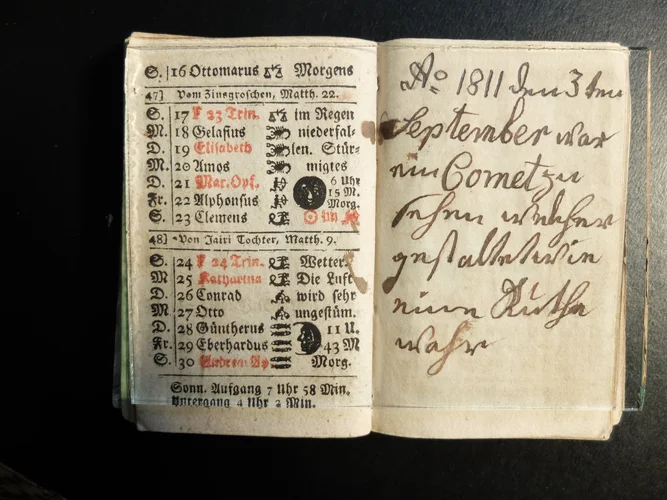 S. 16 Ottomarus Morgens
47] Vom Zinsgroschen, Matth. 22.
S. 17 F 23 Trin. im Regen
M. 18 Gelasus niederfal-
D. 19 Elisabeth len. Stür-
M. 20 Amos migtes
D. 21 Mar. Opf. 6 Uhr
15 M.
Fr. 22 Alphonsus Morg.
S. 23 Clemens im
48] Von Jairi Tochter, Matth. 9.
S. 24 F 24 Trin. Wetter.
M 25 Katharina Die Luft
D. 26 Conrad wird sehr
M. 27 Otto ungestüm.
D. 28 Güntherus 11 U.
Fr. 29 Eberhardus 43 M
S. 30 Andreas Ap Morg.
Sonn. Aufgang 7 Uhr 58 Min.
Untergang 4 Uhr 2 Min.
Ao 1811 den 3ten
September war
ein Comet zu
sehen welcher
gestaltet wie
eine Ruthe
wahr